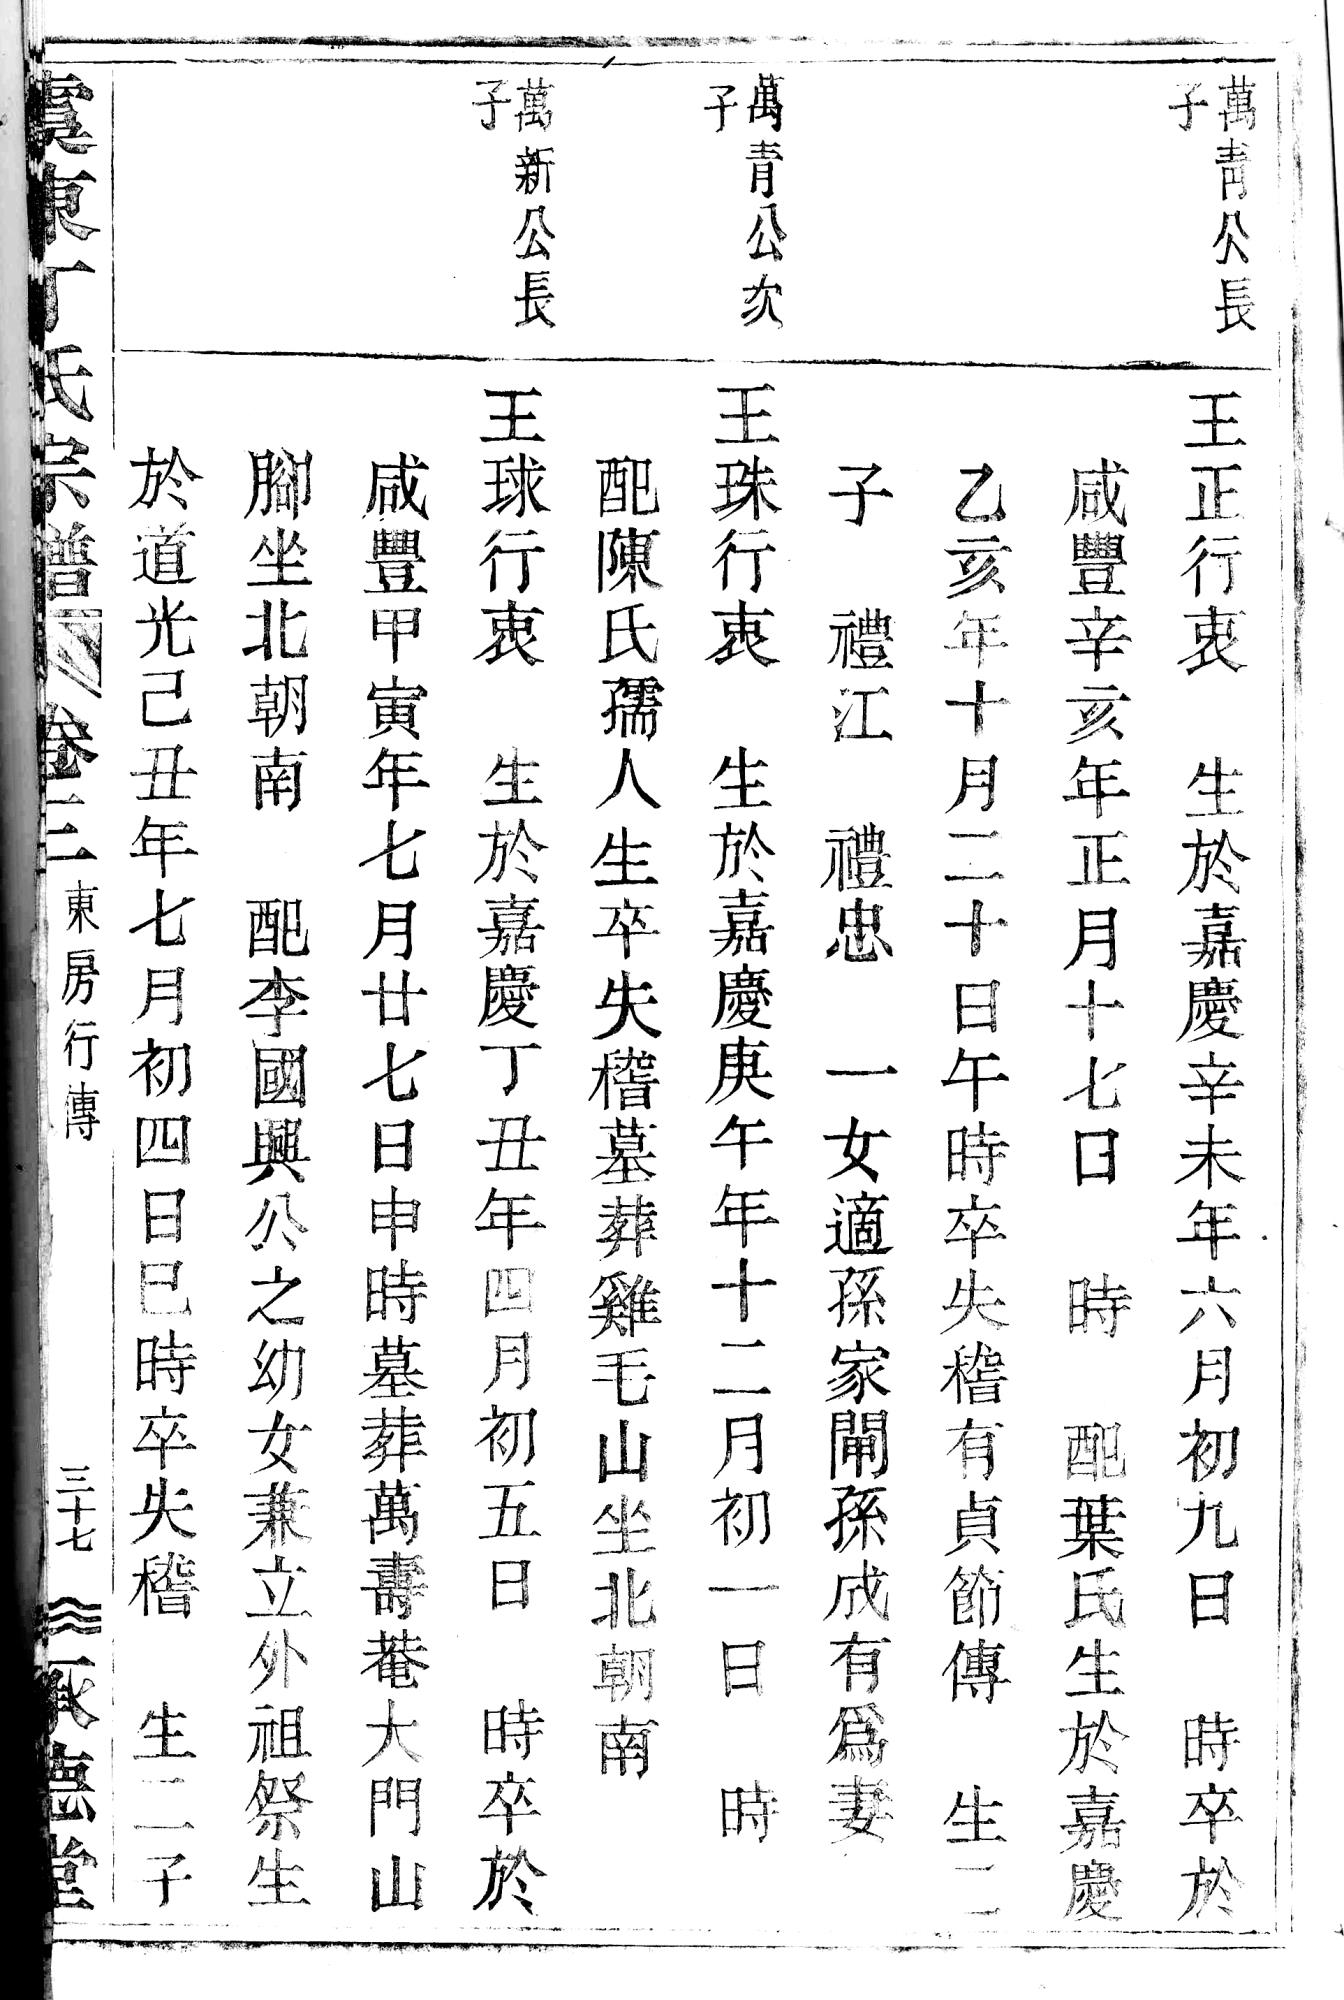 萬青公長
子
王正行衷　生於嘉慶辛未年六月初九日　時卒於
咸豐辛亥年正月十七日　時　配葉氏生於嘉慶
乙亥年十月二十日午時卒失稽有貞節傳　生二
子　禮江　禮忠　一女適孫家閘孫成有爲妻
萬青公次
子
王珠行衷　生於嘉慶庚午年十二月初一日　時
配陳氏孺人生卒失稽墓葬雞毛山坐北朝南
萬新公長
子
王球行衷　生於嘉慶丁丑年四月初五日　時卒於
咸豐甲寅年七月廿七日申時墓葬萬壽菴大門山
腳坐北朝南　配李國興公之幼女兼立外祖祭生
於道光己丑年七月初四日巳時卒失稽　生二子
虞東丁氏宗譜　卷三　東房行傳　三十七　承德堂